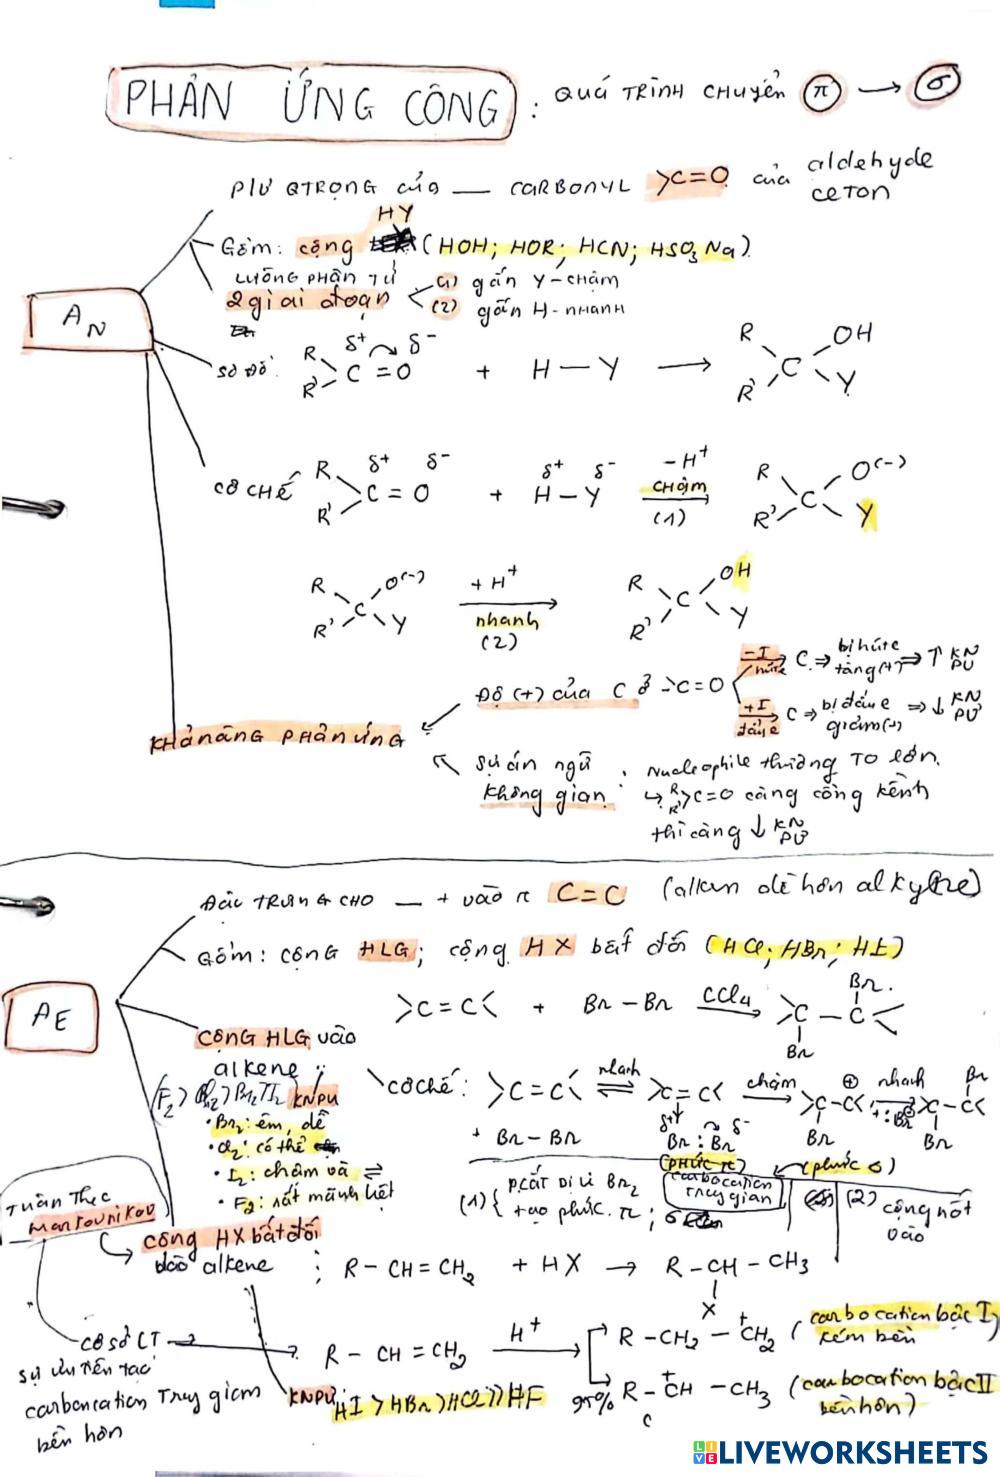 PHẢN ỨNG CỘNG : QUÁ TRÌNH CHUYỂN π → σ
P/Ư QTRỌNG của — CARBONYL >C=O của aldehyde
CETON
HY
Gồm: cộng (HOH; HOR; HCN; HSO3Na)
LƯỠNG PHÂN TỬ
2 giai đoạn (1) gắn Y - CHẬM
(2) gắn H - NHANH
AN
SƠ ĐỒ: R R' C = O δ+ δ- + H — Y → R R' C OH Y
CƠ CHẾ R R' C = O δ+ δ- + H — Y δ+ δ- -H+ CHẬM (1) R R' C O(-) Y
R R' C O(-) Y +H+ nhanh (2) R R' C OH Y
Độ (+) của C ở >C=O
-I hút e C ⇒ bị hút e tăng (+) ⇒ ↑ KN PƯ
+I đẩy e C ⇒ bị đẩy e giảm (+) ⇒ ↓ KN PƯ
KHẢ NĂNG PHẢN ỨNG
Sự án ngữ không gian : Nucleophile thường TO lớn.
↳ R R' >C=O càng cồng kềnh
thì càng ↓ KN PƯ
ĐẶC TRƯNG CHO — + vào π C=C (alken dễ hơn alkyne)
GỒM: CỘNG HLG; cộng HX bất đối (HCl; HBr; HI)
AE
>C=C< + Br - Br CCl4 → >C — C< Br Br
CỘNG HLG vào
alkene :
(F2 > Cl2 > Br2 > I2 KNPƯ
• Br2: êm, dễ
• Cl2: có thể
• I2: chậm và ⇌
• F2: rất mãnh liệt
Cơ chế: >C=C< + Br - Br nhanh ⇌ >C=C< δ+ δ- Br : Br (PHỨC π) chậm → >C - C< ⊕ Br (phức σ) nhanh + :Br → >C - C< Br Br
(1) { p.cắt dị li Br2
+ tạo phức π ; σ
carbocation
Trung gian
(2) cộng nốt
vào
TUÂN THEO
Markovnikov
cộng HX bất đối
vào alkene : R - CH = CH2 + HX → R - CH - CH3 X
CƠ SỞ LT R - CH = CH2 H+ R - CH2 - CH2 + (carbocation bậc I
kém bền
sự ưu tiên tạo
carbocation Trung gian
bền hơn
95% R - CH - CH3 + (carbocation bậc II
bền hơn)
KNPƯ HI > HBr > HCl >> HF
LIVEWORKSHEETS